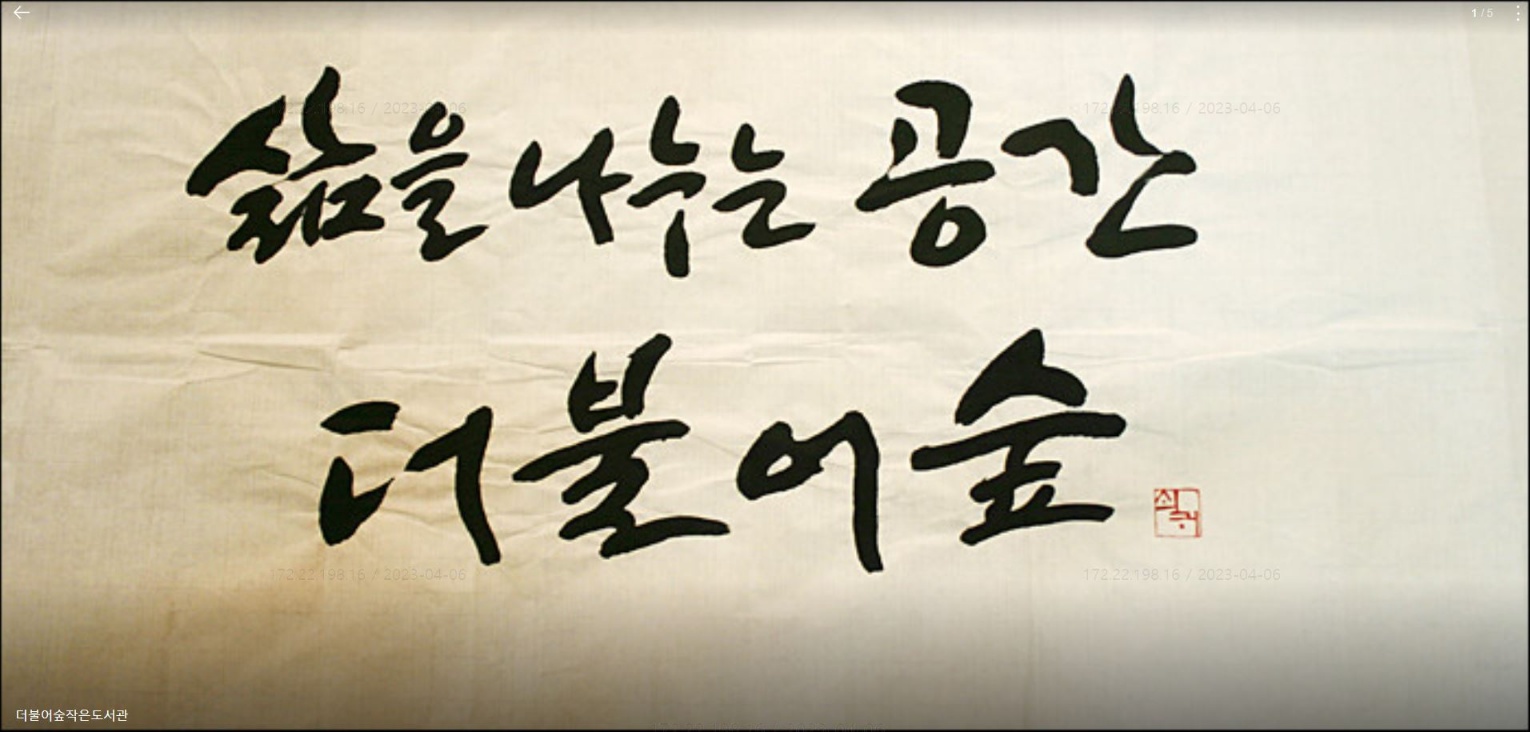 1 / 5
172.22.198.16 / 2023-04-06
삶을 나누는 공간
더불어숲
172.22.198.16 / 2023-04-06
172.22.198.16 / 2023-04-06
더불어숲작은도서관